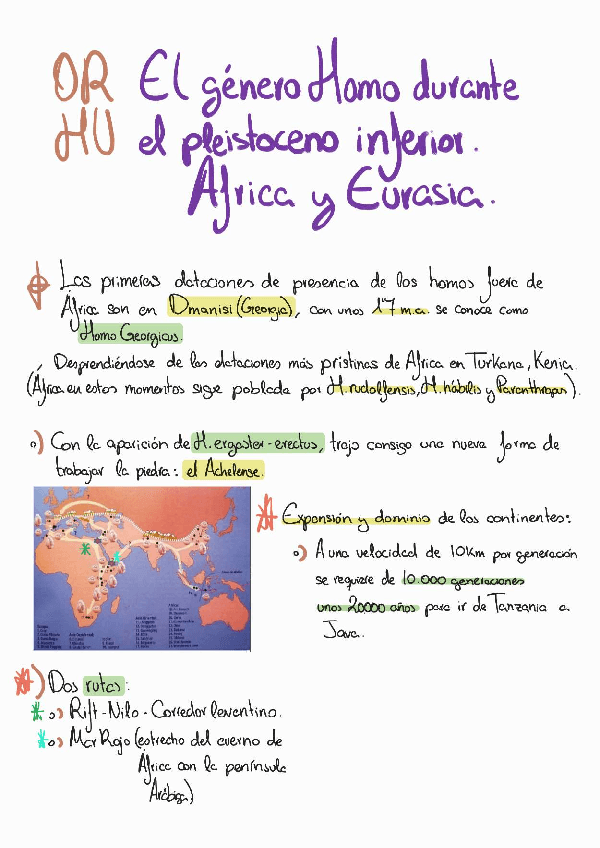 OR
HU
El género Homo durante
el pleistoceno inferior.
África y Eurasia.
Las primeras dataciones de presencia de los homos fuera de
África son en Dmanisi (Georgia), con unos 1'7 m.a. se conoce como
Homo Georgicus.
Desprendiéndose de las dataciones más pristinas de África en Turkana, Kenia.
(África en estos momentos sige poblada por H. rudolfensis, H. hábilis y Paranthropus).
Con la aparición de H. ergaster-erectus, trajo consigo una nueva forma de
trabajar la piedra: el Achelense.
Expansión y dominio de los continentes:
A una velocidad de 10Km por generación
se requiere de 10.000 generaciones
unos 20000 años para ir de Tanzania a
Java.
Dos rutas:
Rift-Nilo-Corredor levantino.
Mar Rojo (estrecho del cuerno de
África con la península
Arábiga)